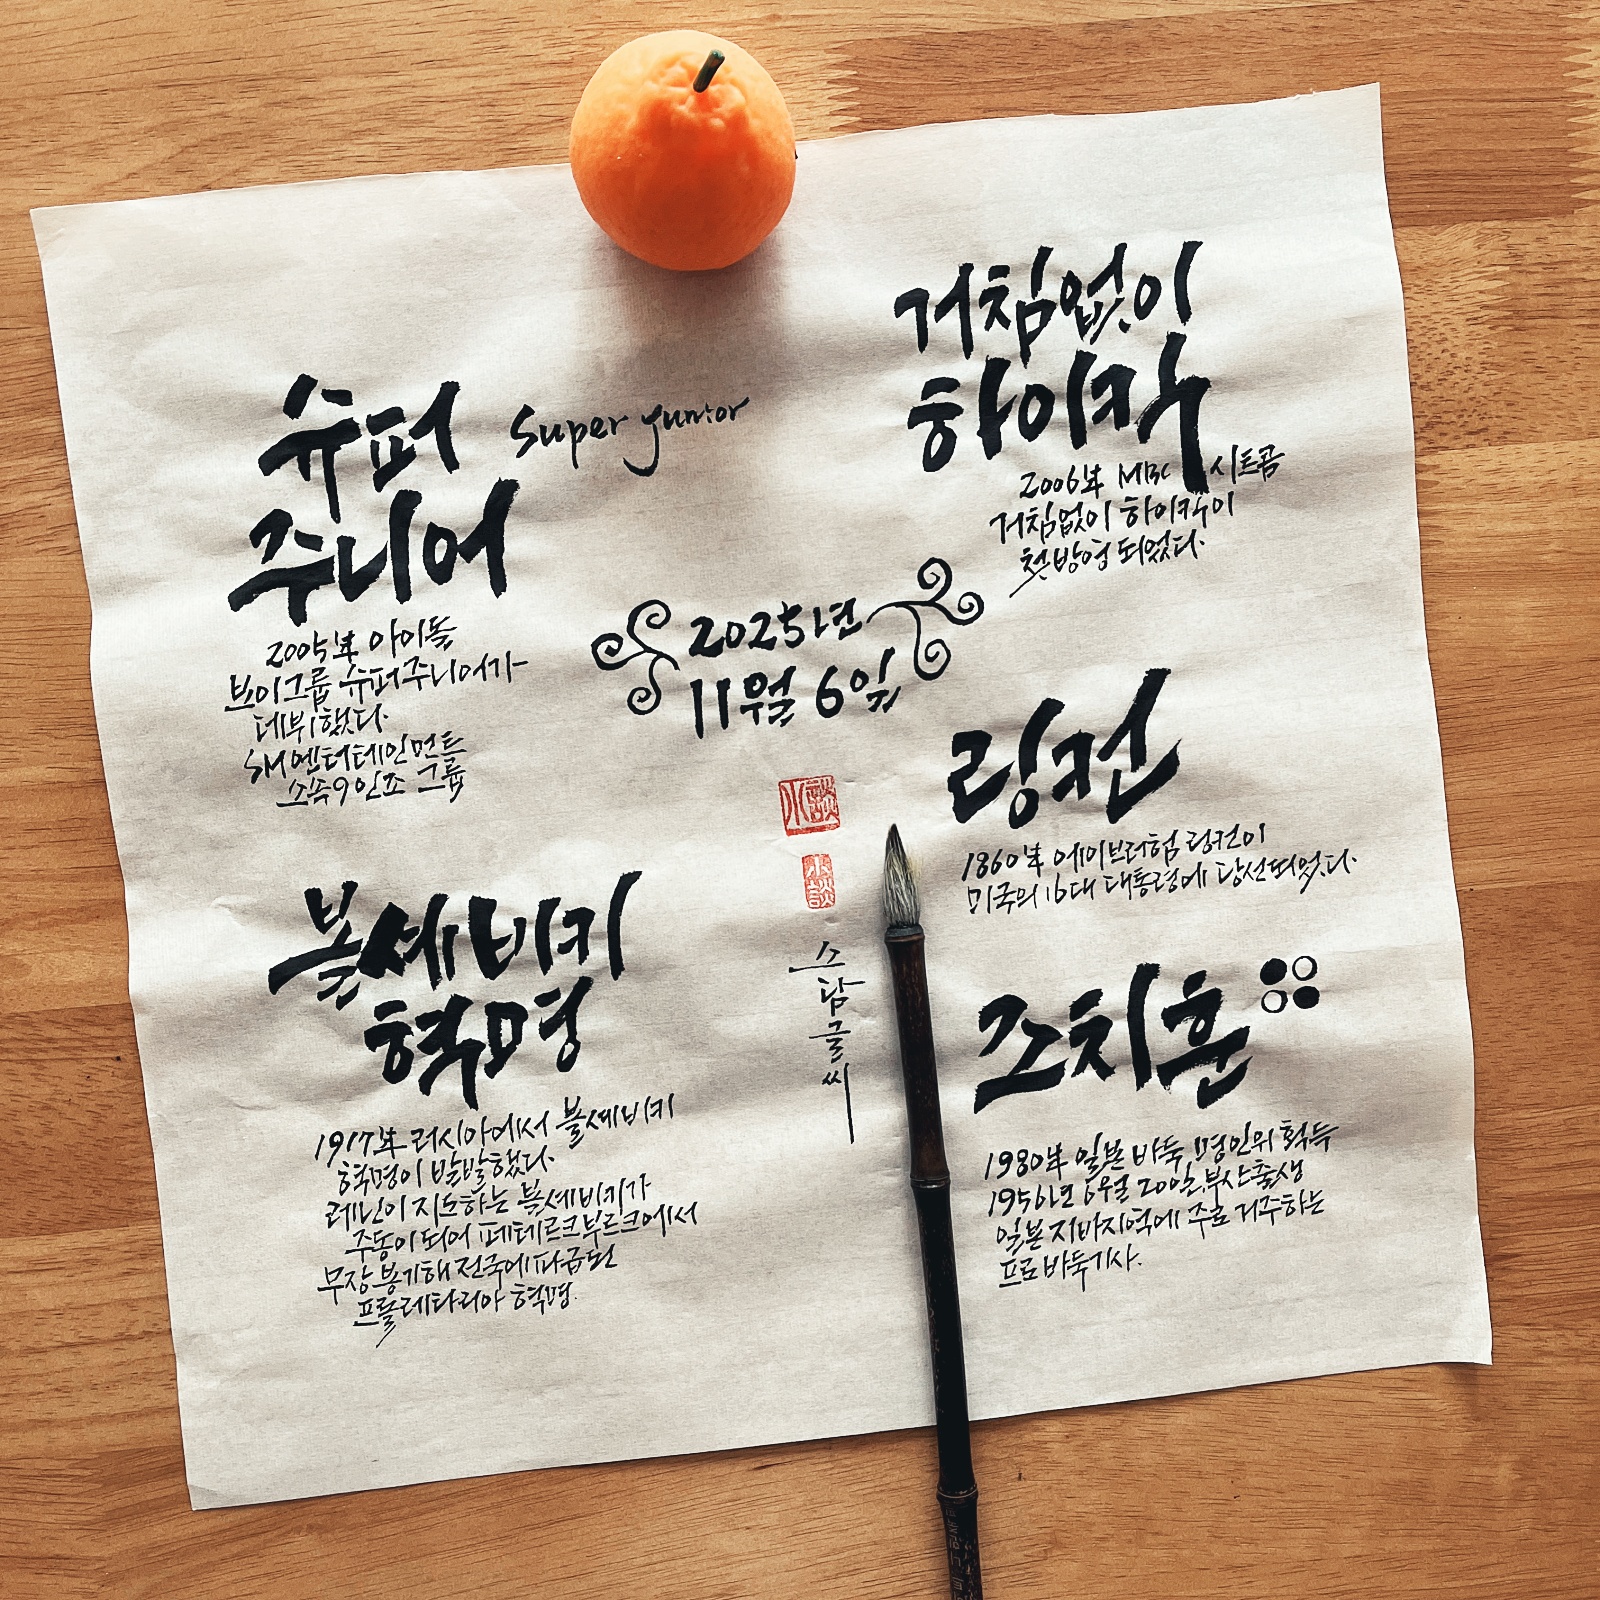 슈퍼
주니어
Super Junior
2005年 아이돌
보이그룹 슈퍼주니어가
데뷔했다.
SM엔터테인먼트
소속 9인조 그룹
거침없이
하이킥
2006年 MBC 시트콤
거침없이 하이킥이
첫 방영 되었다.
2025년
11월 6일
링컨
1860年 에이브러햄 링컨이
미국의 16대 대통령에 당선되었다.
볼셰비키
혁명
1917年 러시아에서 볼셰비키
혁명이 발발했다.
레닌이 지도하는 볼셰비키가
주동이 되어 페테르크부르크에서
무장봉기해 전국에 파급된
프롤레타리아 혁명.
조치훈
1980年 일본 바둑 명인위 획득
1956년 6월 20일, 부산출생
일본 지바지역에 주로 거주하는
프로 바둑기사.
小談
小談
소담글씨